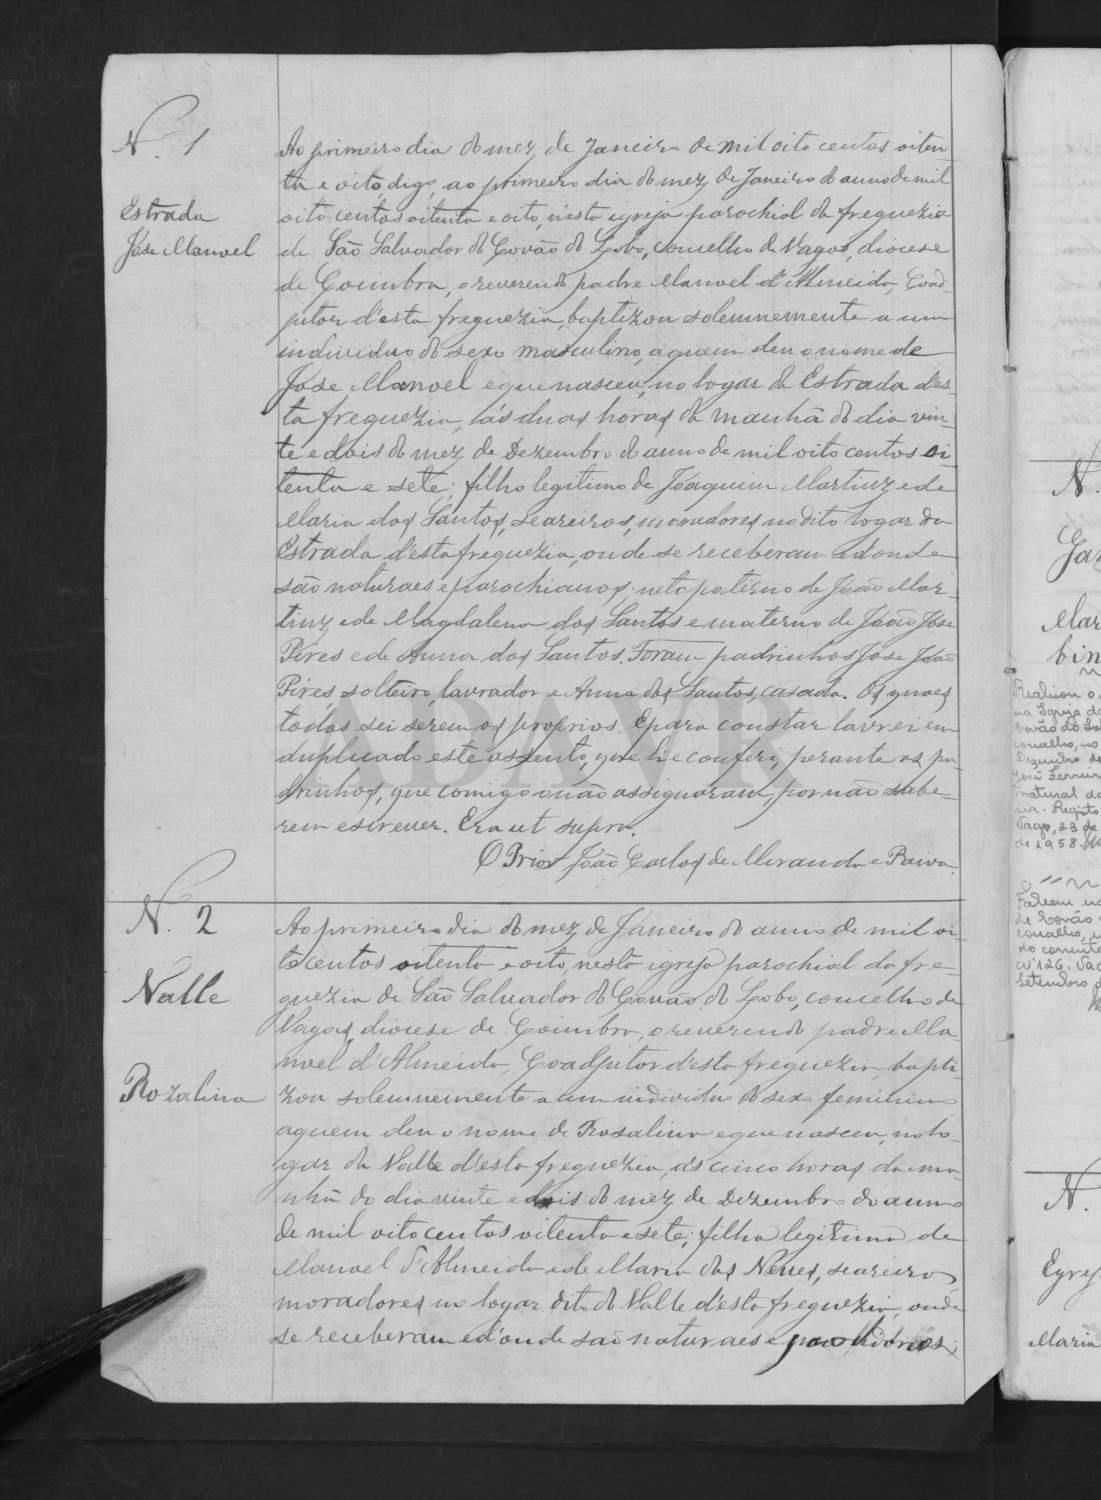 N.º 1
Estrada
José Manoel
Ao primeiro dia do mez de Janeiro de mil oito centos oiten-
ta e oito digo, ao primeiro dia do mez de Janeiro do anno de mil
oito centos oitenta e oito, n'esta igreja parochial da freguezia
de São Salvador do Covão do Lobo, concelho de Vagos, diocese
de Coimbra, o reverendo padre Manoel d'Almeida, Coad-
jutor d'esta freguezia, baptizou solemnemente a um
individuo do sexo masculino, a quem deu o nome de
José Manoel e que nasceu, no logar da Estrada d'es-
ta freguezia, ás duas horas da manhã do dia vin-
te e dois do mez de Dezembro do anno de mil oito centos oi-
tenta e sete; filho legitimo de Joaquim Martinz e de
Maria dos Santos, seareiros, moradores no dito logar da
Estrada d'esta freguezia, onde se receberam e d'onde
são naturaes e parochianos; neto paterno de João Mar-
tinz e de Magdalena dos Santos e materno de João José
Pires e de Anna dos Santos. Foram padrinhos José João
Pires, solteiro, lavrador e Anna dos Santos, casada. Os quaes
todos sei serem os proprios. E para constar lavrei em
duplicado este assento, que li e conferi, perante os pa-
drinhos, que comigo não assignaram, por não sabe-
rem escrever. Era ut supra.
O Prior João Carlos de Miranda e Paiva.
N. 2
Valle
Rozalina
Ao primeiro dia do mez de Janeiro do anno de mil oi-
to centos oitenta e oito, nesta igreja parochial da fre-
guezia de São Salvador do Covão do Lobo, concelho de
Vagos, diocese de Coimbra, o reverendo padre Ma-
noel d'Almeida, Coadjutor d'esta freguezia, bapti-
zou solemnemente a um individuo do sexo feminino
a quem deu o nome de Rosalina e que nasceu, no lo-
gar do Valle d'esta freguezia, ás cinco horas da ma-
nhã do dia vinte e dois do mez de Dezembro do anno
de mil oito centos oitenta e sete; filha legitima de
Manoel d'Almeida e de Maria das Neves, seareiros,
moradores no logar dito do Valle d'esta freguezia, onde
se receberam e d'onde são naturaes e parochianos;
N.
Mar
bin
Realizou o
na Igreja do
Covão do Lo
concelho, no
Dezembro de
José Ferreira
natural da
Registo
Vagos, 23 de
de 1958.
Faleceu na
de Covão
concelho,
do corrente
nº 126. Vag
Setembro
N.
Egrej
Maria
ADAVR